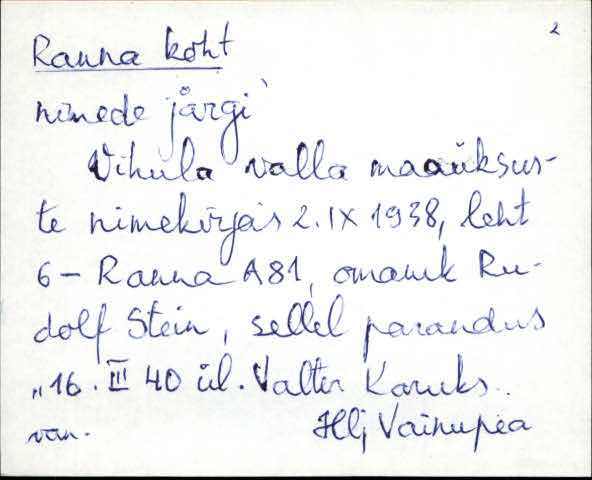 2
Ranna koht
nimede järgi
Vihula valla maaüksus-
te nimekirjas 2. IX 1938, leht
6 - Ranna A81, omanik Ru-
dolf Stein, sellel parandus
„16. III 40 ül. Valter Karuks.
van. Hlj Vainupea